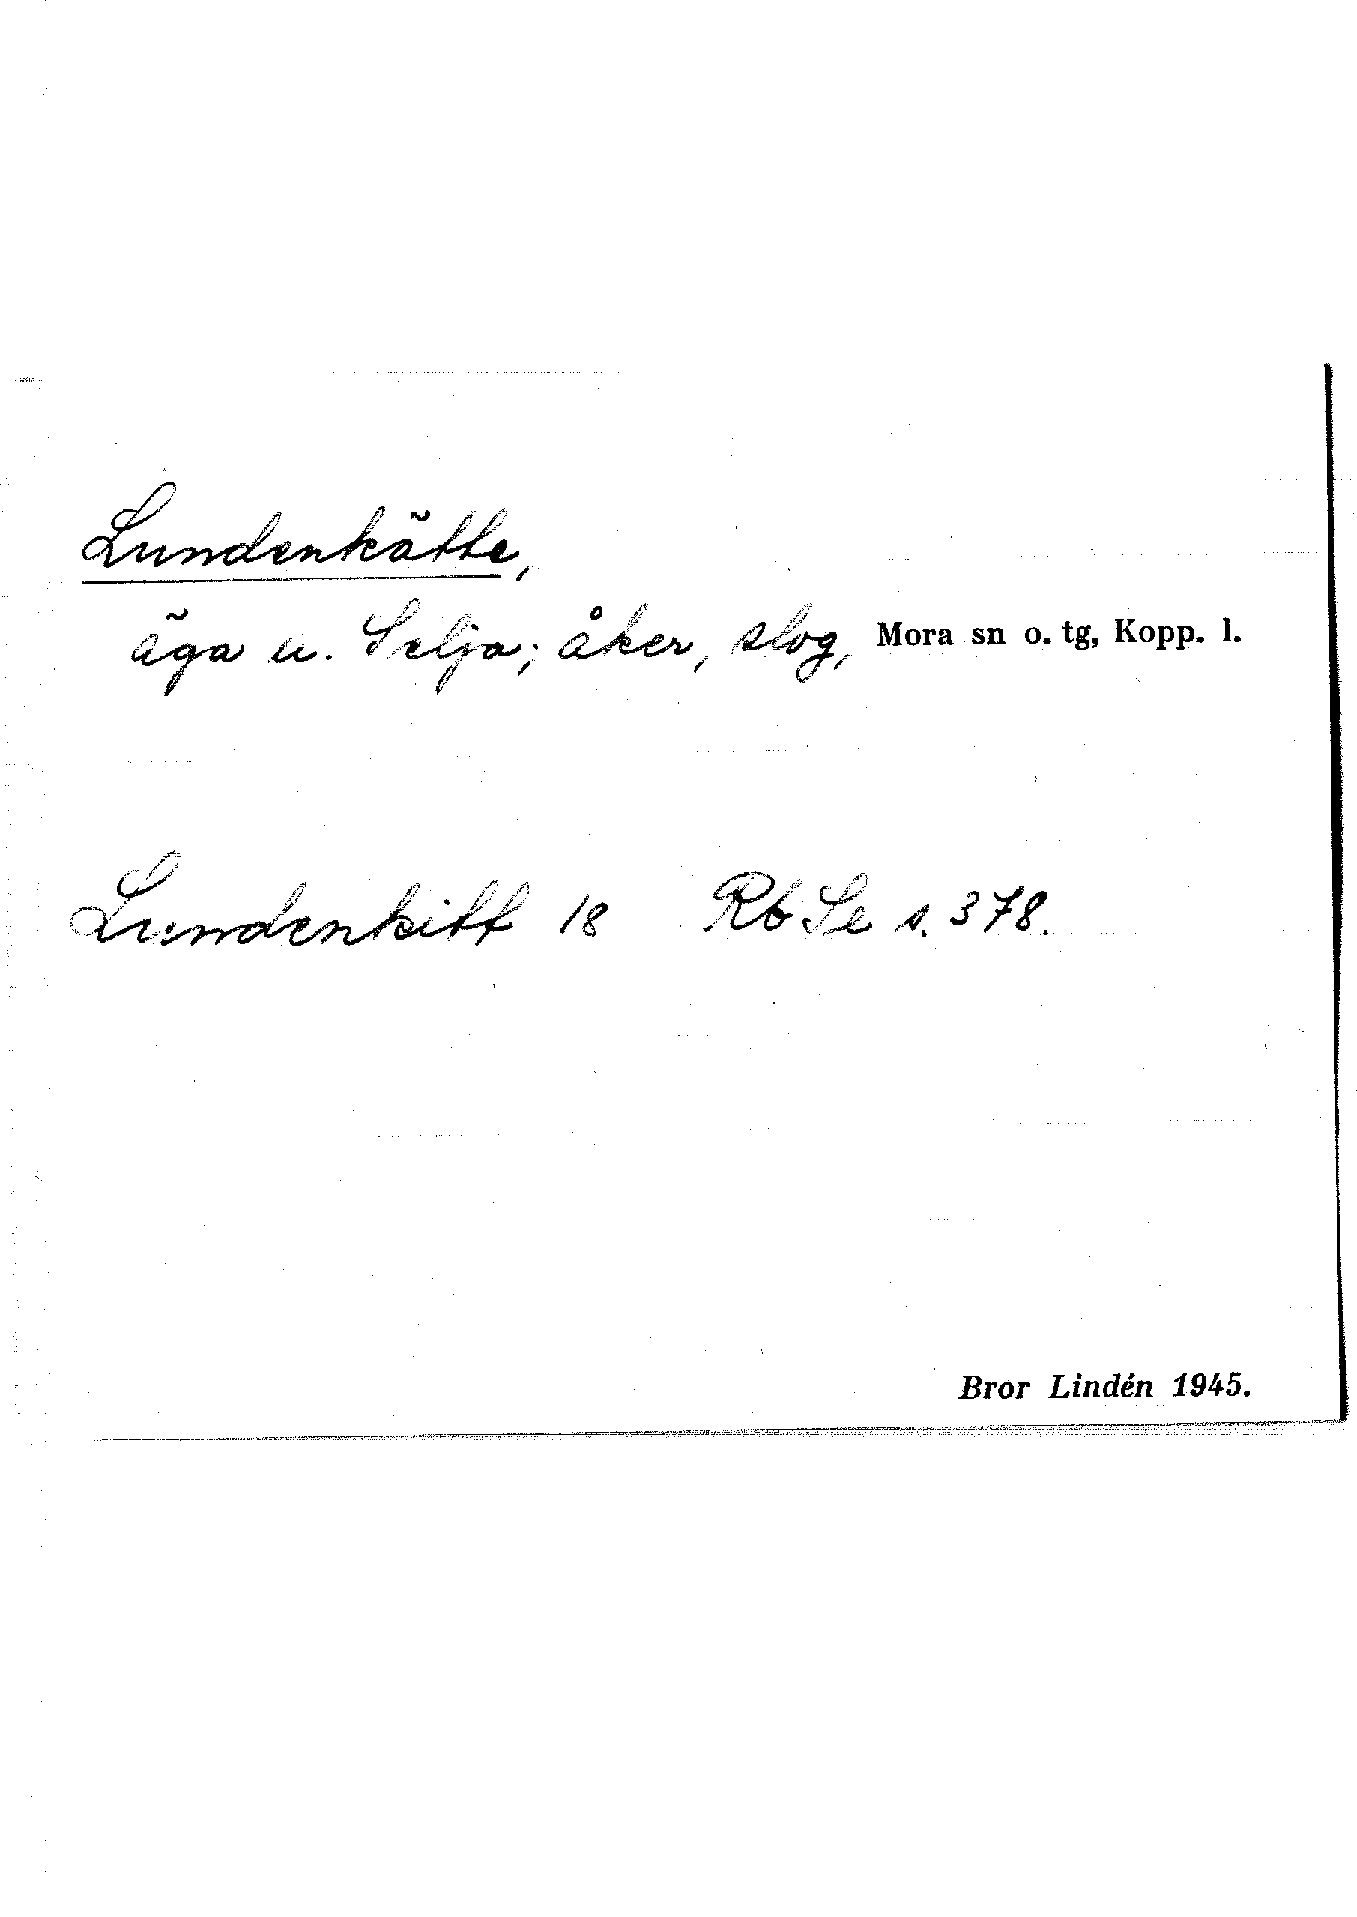 Lundenkätte,
äga u. Selja; åker, slog, Mora sn o. tg, Kopp. l.
Lundenkitt 18 Rb Se s. 378.
Bror Lindén 1945.